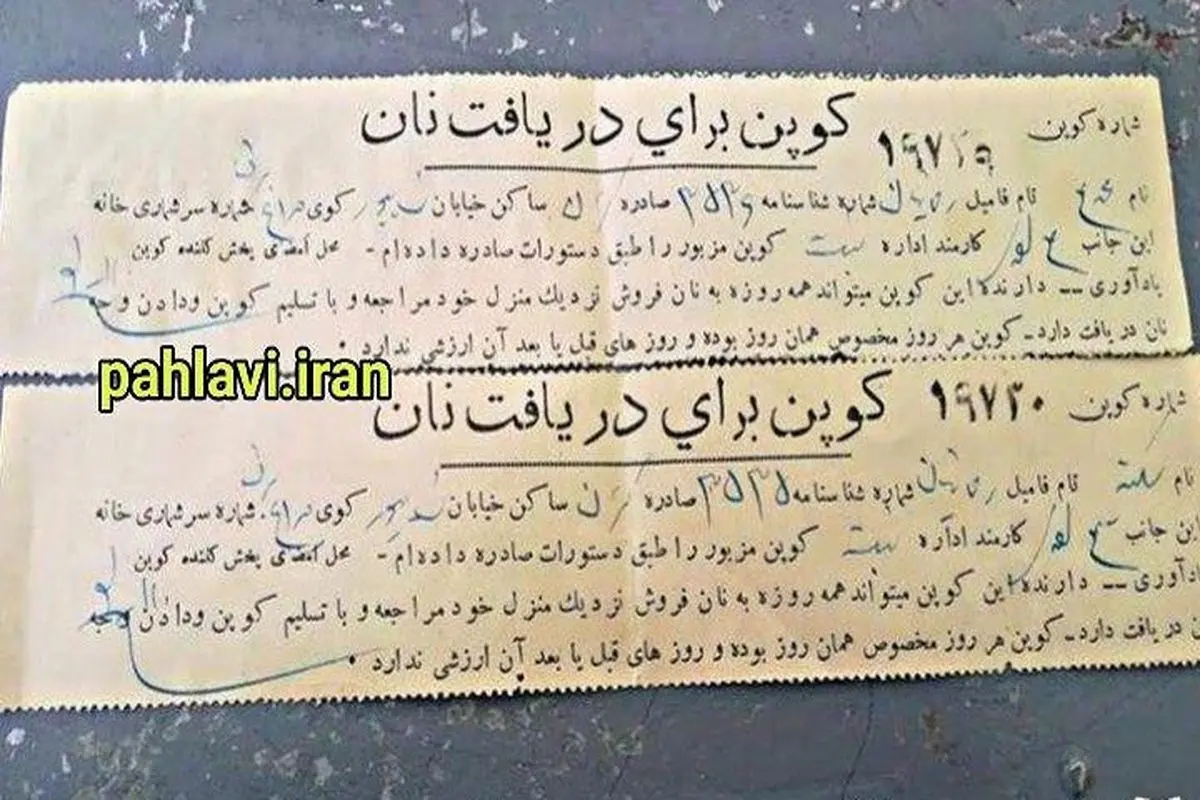 شماره کوپن
کوپن برای دریافت نان
نام نام فامیل شماره شناسنامه صادره ساکن خیابان کوی شماره سرشماری خانه
این جانب کارمند اداره کوپن مزبور را طبق دستورات صادره داده‌ام - محل امضای پخش کننده کوپن
یادآوری ــ دارنده این کوپن میتواند همه روزه به نان فروش نزدیك منزل خود مراجعه و با تسلیم کوپن ودادن وجه
نان دریافت دارد ـ کوپن هر روز مخصوص همان روز بوده و روز های قبل یا بعد آن ارزشی ندارد .
pahlavi.iran
شماره کوپن ۱۹۷۳۰
کوپن برای دریافت نان
نام نام فامیل شماره شناسنامه صادره ساکن خیابان کوی شماره سرشماری خانه
این جانب کارمند اداره کوپن مزبور را طبق دستورات صادره داده‌ام - محل امضای پخش کننده کوپن
یادآوری ــ دارنده این کوپن میتواند همه روزه به نان فروش نزدیك منزل خود مراجعه و با تسلیم کوپن ودادن وجه
دریافت دارد ـ کوپن هر روز مخصوص همان روز بوده و روز های قبل یا بعد آن ارزشی ندارد .